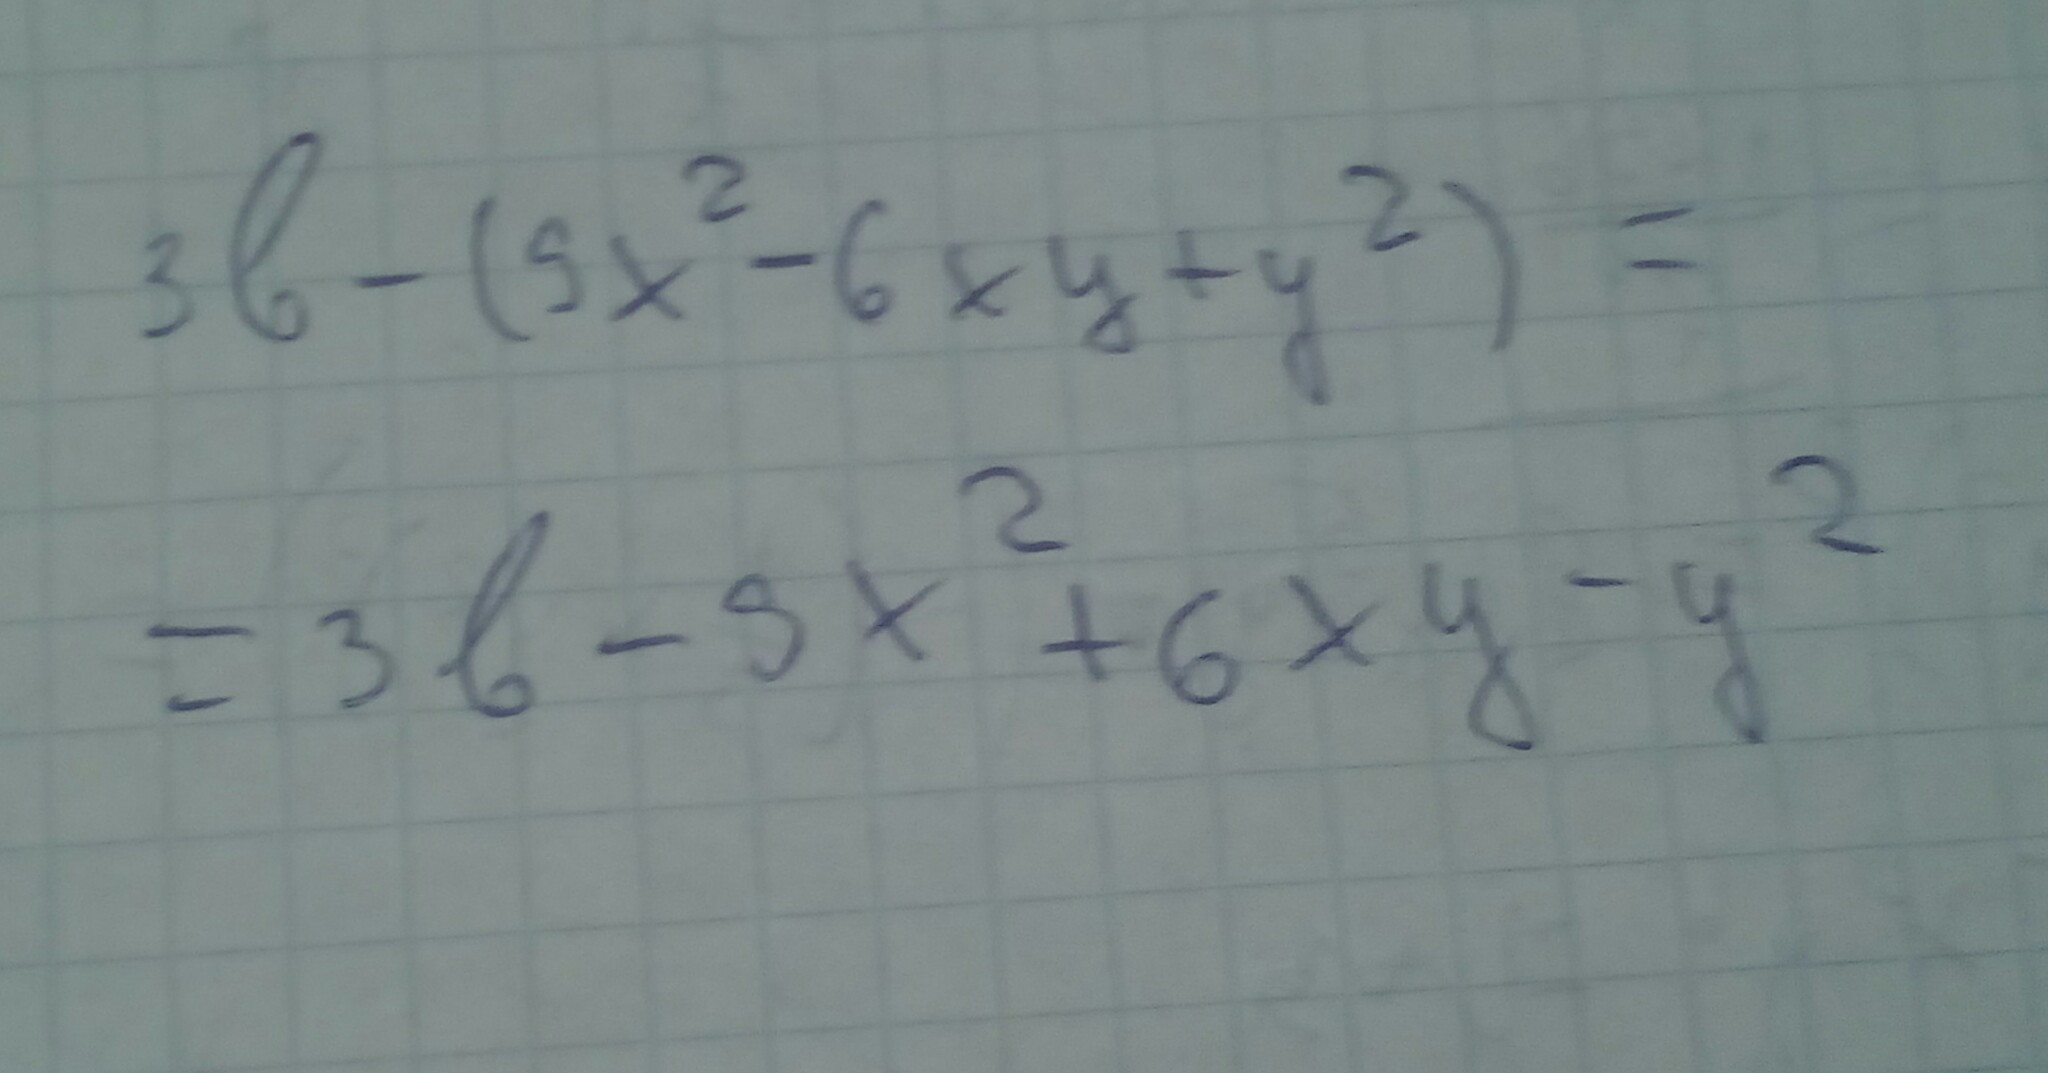 3b - (9x² - 6xy + y²) =
= 3b - 9x² + 6xy - y²